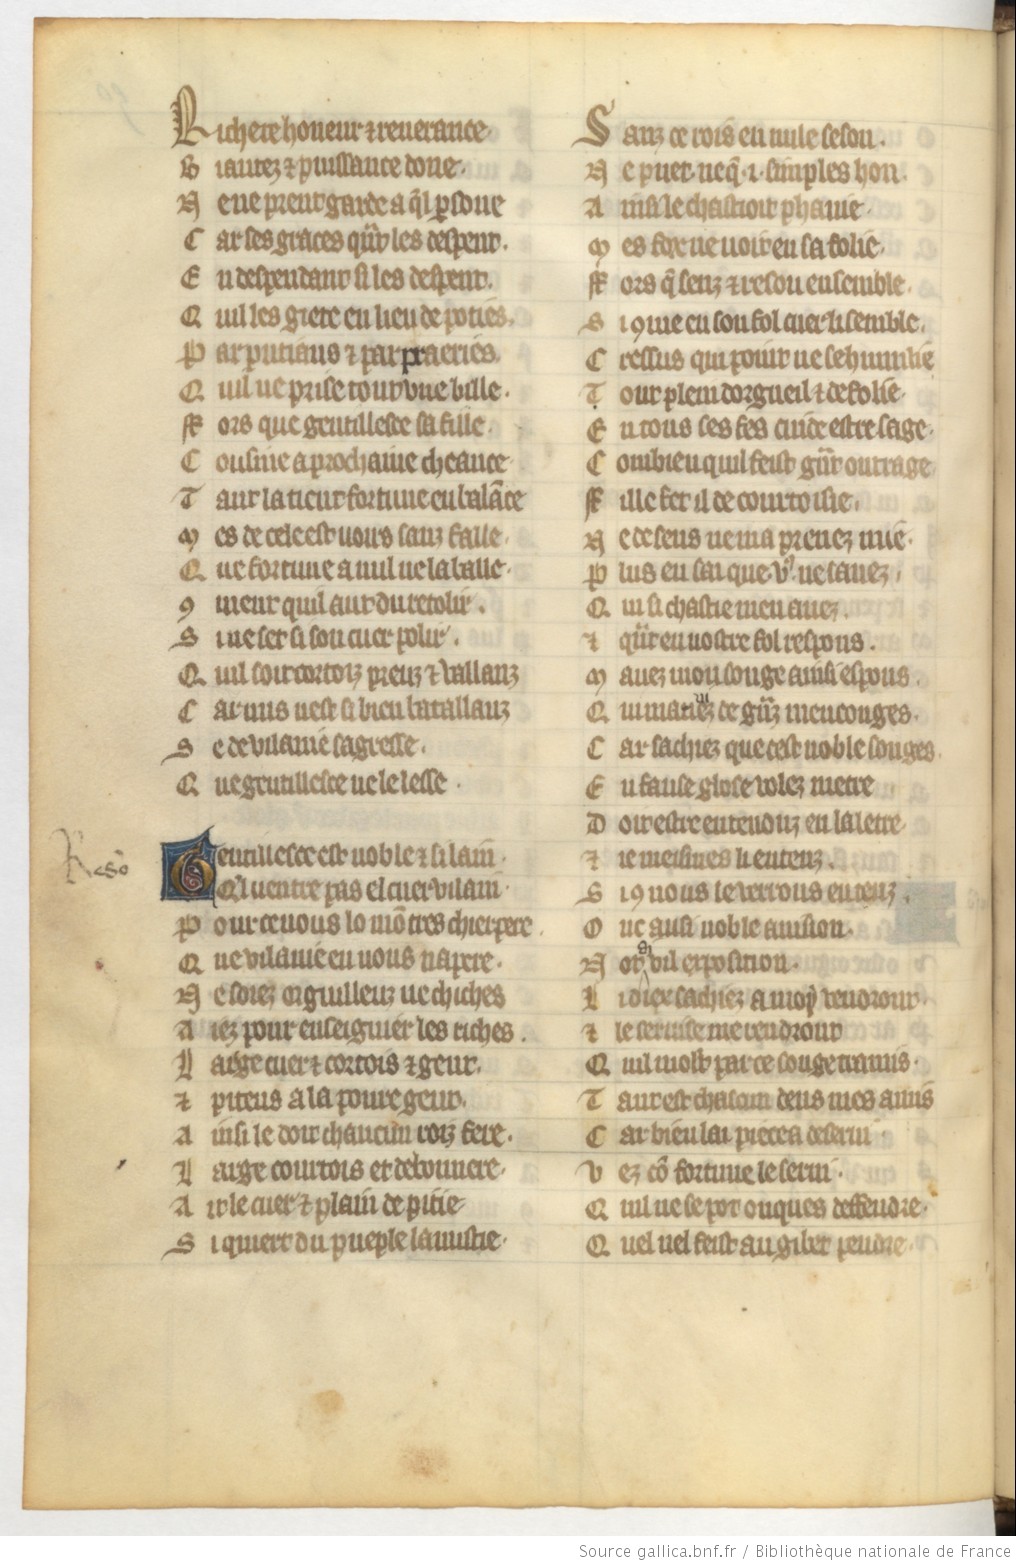 Richece honeur ⁊ reuerance
Biautez ⁊ puissance done.
Ne ne prent garde a ql psone
Car ses graces qnt les despent.
En despendant si les despent.
Quil les giete en lieu de poties.
Par putiaus ⁊ par praeries.
Quil ne prise tout vne bille.
Fors que gentillesce sa fille.
Cousine a prochaine cheance
Tant la tient fortune en balāce
Mes de cele est uoirs sanz faille.
Que fortune a nul ne la baille.
9ment quil aut du retolir.
Sine set si son cuer polir.
Quil soit cortoiz preuz ⁊ vallanz
Car nus nest si bien batallanz
Se de vilanie sagresse.
Que gentillesce ne le lesse.
Reso
Gentillesce est noble ⁊ si lain.
Ql nentre pas el cuer vilain.
Pour ce uous lo mō tres chier pere.
Que vilanie en uous napere.
Ne soiez orguilleuz ne chiches
Aiez pour enseignier les riches.
Large cuer ⁊ cortois ⁊ gent.
⁊ piteus a la poure gent.
Ainsi le doit chaucun roiz fere.
Large courtois et debonnere.
Ait le cuer ⁊ plain de pitie
Si quiert du pueple lamistie.
Sanz ce rois en nule seson.
Ne puet. ne q̄ .i. simples hon.
Ainsi le chastioit phanie.
Mes fox ne uoit en sa folie.
Fors q̄ senz ⁊ reson ensemble.
Si 9me en son fol cuer li semble.
Cressus qui point ne se humilie
Tout plein dorgueil ⁊ de folie
En tous ses fes cuide estre sage.
Combien quil feist gñt outrage
Fille fet il de courtoisie.
Ne de sens ne ma prenez mie.
Plus en sai que vͦ ne sauez.
Qui si chastie men auez.
⁊ qñt en uostre fol respons.
Mauez mon songe ainsi espons.
Qui matiez de gñz mencouges.
Car sachiez que cest noble songes.
En fause glose volez metre
Doit estre entenduz en la letre
⁊ ie meismes li entenz.
Si 9 nous le verrons en tenz.
Onc ausi noble auision.
Not si vil exposition.
Li diex sachiez a moy vendront.
⁊ le seruise me rendront
Quil mont par ce songe tramis.
Tant est chacun deus mes amis
Car bien lai pieca deserui
Vez cō fortune le serui.
Quil ne se pot onques deffendre.
Quel nel feist au gibet pendre.
Source gallica.bnf.fr / Bibliothèque nationale de France